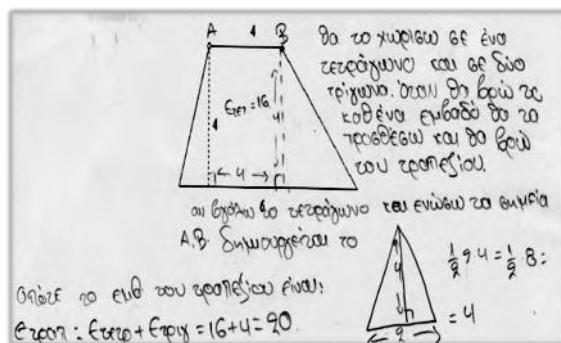 4
Α Β
θα το χωρίσω σε ένα
τετράγωνο και σε δύο
τρίγωνα. όταν θα βρώ το
καθένα εμβαδό θα το
προσθέσω και θα βρώ
του τραπεζίου.
Ετετ=16
4
4
4
αν βγάλω το τετράγωνο και ενώσω τα σημεία
Α.Β. δημιουργείται το
4
2
1/2 2 4 = 1/2 8 =
= 4
οπότε το εμβ του τραπεζίου είναι:
Ετραπ = Ετετρ + Ετριγ = 16+4=20.